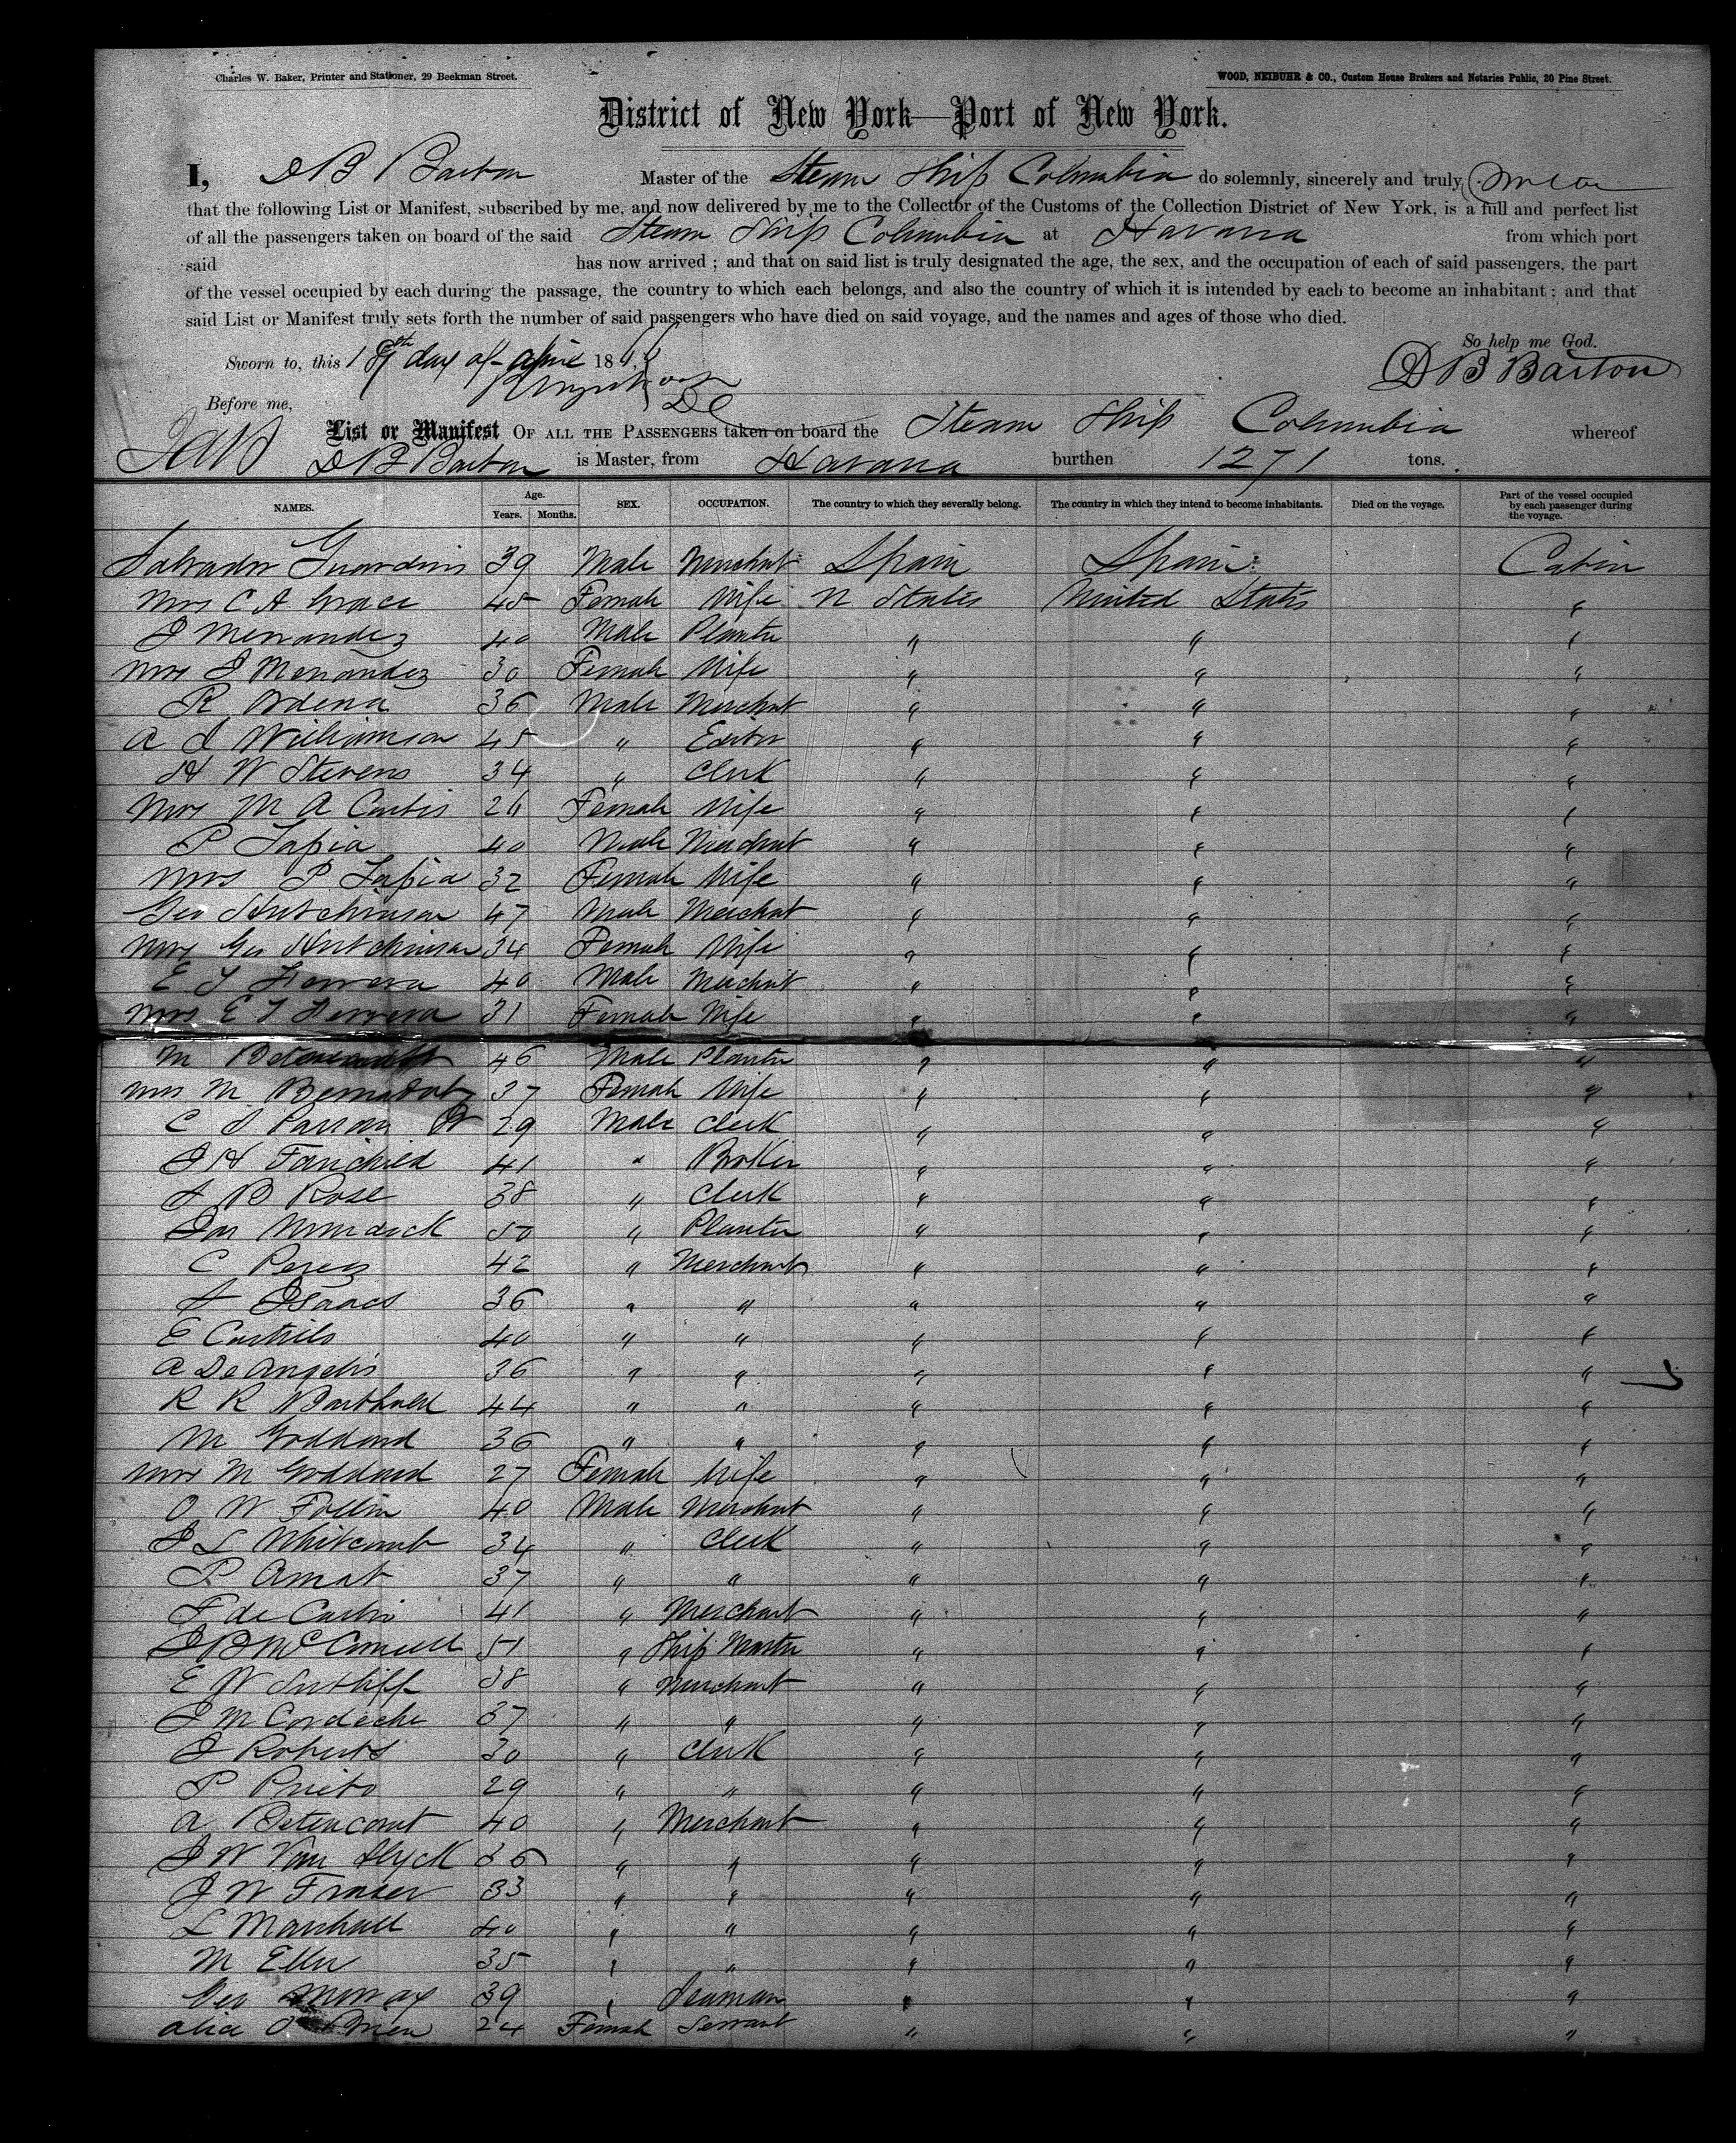 Charles W. Baker, Printer and Stationer, 29 Beekman Street.
WOOD, NEIBUHR & CO., Custom House Brokers and Notaries Public, 20 Pine Street.
District of New York—Port of New York.
I, D B Barton Master of the Steam Ship Columbia do solemnly, sincerely and truly swear
that the following List or Manifest, subscribed by me, and now delivered by me to the Collector of the Customs of the Collection District of New York, is a full and perfect list
of all the passengers taken on board of the said Steam Ship Columbia at Havana from which port
said has now arrived ; and that on said list is truly designated the age, the sex, and the occupation of each of said passengers, the part
of the vessel occupied by each during the passage, the country to which each belongs, and also the country of which it is intended by each to become an inhabitant ; and that
said List or Manifest truly sets forth the number of said passengers who have died on said voyage, and the names and ages of those who died.
So help me God.
Sworn to, this 18th day of 18
D B Barton
Before me,
List or Manifest OF ALL THE PASSENGERS taken on board the Steam Ship Columbia whereof
D B Barton is Master, from Havana burthen 1271 tons.
NAMES. Age. Years. Months. SEX. OCCUPATION. The country to which they severally belong. The country in which they intend to become inhabitants. Died on the voyage. Part of the vessel occupied by each passenger during the voyage.
Salvador 39 Male Merchant Spain Spain Cabin
Mrs C A Grace 45 Female Wife U States United States "
J Menandez 40 Male Planter " " "
Mrs J Menandez 30 Female Wife " " "
R Ordena 36 Male Merchant " " "
A J Williamson 45 " Editor " " "
H W Stevens 34 " Clerk " " "
Mrs M A Curtis 26 Female Wife " " "
P Tapia 40 Male Merchant " " "
Mrs P Tapia 32 Female Wife " " "
Geo Hutchinson 47 Male Merchant " " "
Mrs Geo Hutchinson 34 Female Wife " " "
E T Herrera 40 Male Merchant " " "
Mrs E T Herrera 31 Female Wife " " "
M 46 Male Planter " " "
Mrs M 37 Female Wife " " "
C 29 Male Clerk " " "
J H Fairchild 41 " Broker " " "
J B Rose 38 " Clerk " " "
Jas Murdock 50 " Planter " " "
C Perez 42 " Merchant " " "
J Isaacs 36 " " " " "
E Castrilo 40 " " " " "
A De Angelis 36 " " " " "
R R Barthold 44 " " " " "
M Goddard 36 " " " " "
Mrs M Goddard 27 Female Wife " " "
O W Follin 40 Male Merchant " " "
J L Whitcomb 34 " Clerk " " "
P Amat 37 " " " " "
F de Castro 41 " Merchant " " "
J B McConnell 51 " Ship Master " " "
E W Sutliff 38 " Merchant " " "
J M 37 " " " " "
J Roberts 30 " Clerk " " "
P Prieto 29 " " " " "
A Betencourt 40 " Merchant " " "
J W Van Slyck 36 " " " " "
J W Fraser 33 " " " " "
L Marshall 40 " " " " "
M Eller 35 " " " " "
Geo 39 " Seaman " " "
Alice O 24 Female Servant " " "